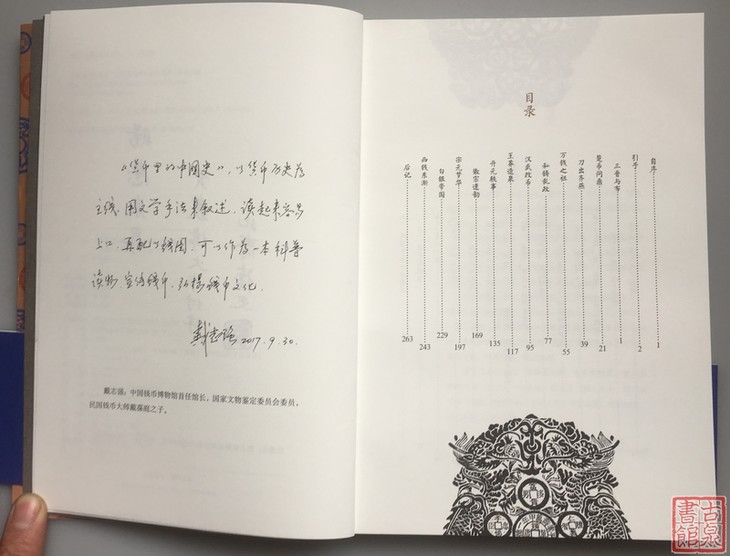 《货币里的中国史》，以货币历史为
主线，用文学手法来叙述，读起来容易
上口，再配以钱图，可以作为一本科普
读物，宣传钱币，弘扬钱币文化。
戴志强 2017.9.30.
戴志强：中国钱币博物馆首任馆长，国家文物鉴定委员会委员，
民国钱币大师戴葆庭之子。
目录
自序 1
引子 2
三晋与布 1
楚币问鼎 21
刀出齐燕 39
万钱之祖 55
私铸乱政 77
汉武改币 95
王莽造泉 117
开元轶事 135
徽宗遗韵 169
宋元梦华 197
白银帝国 229
西钱东渐 243
后记 263
古泉
書館